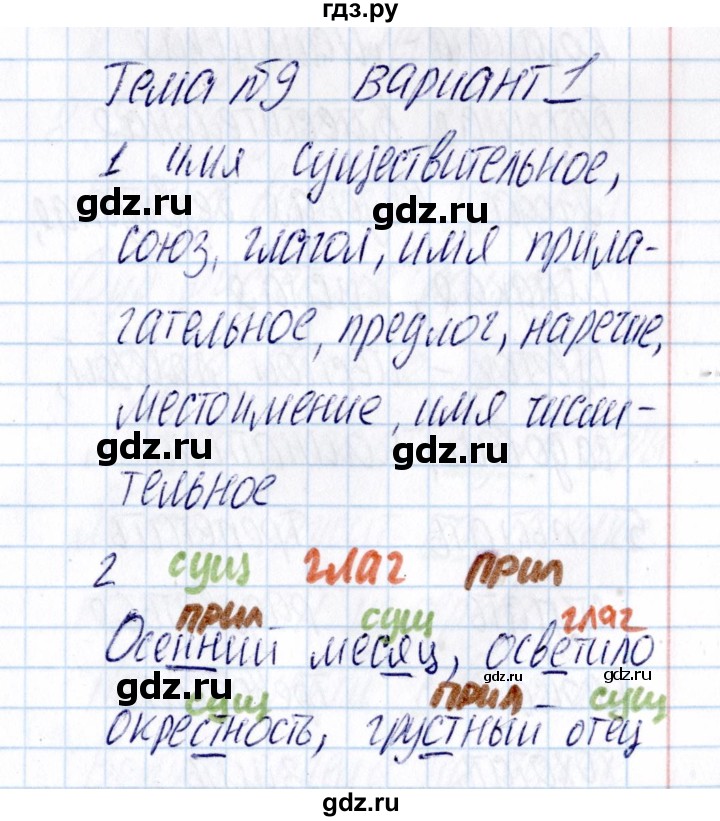 гдз.ру
Тема №9 Вариант 1
1 имя существительное,
gdz.ru gdz.ru
союз, глагол, имя прила-
гательное, предлог, наречие,
местоимение, имя числи-
gdz.ru gdz.ru
тельное
2 сущ глаг прил
прил сущ глаг
Осенний месяц, осветило
gdz.ru gdz.ru gdz.ru
сущ прил сущ
окрестность, грустный отец
gdz.ru